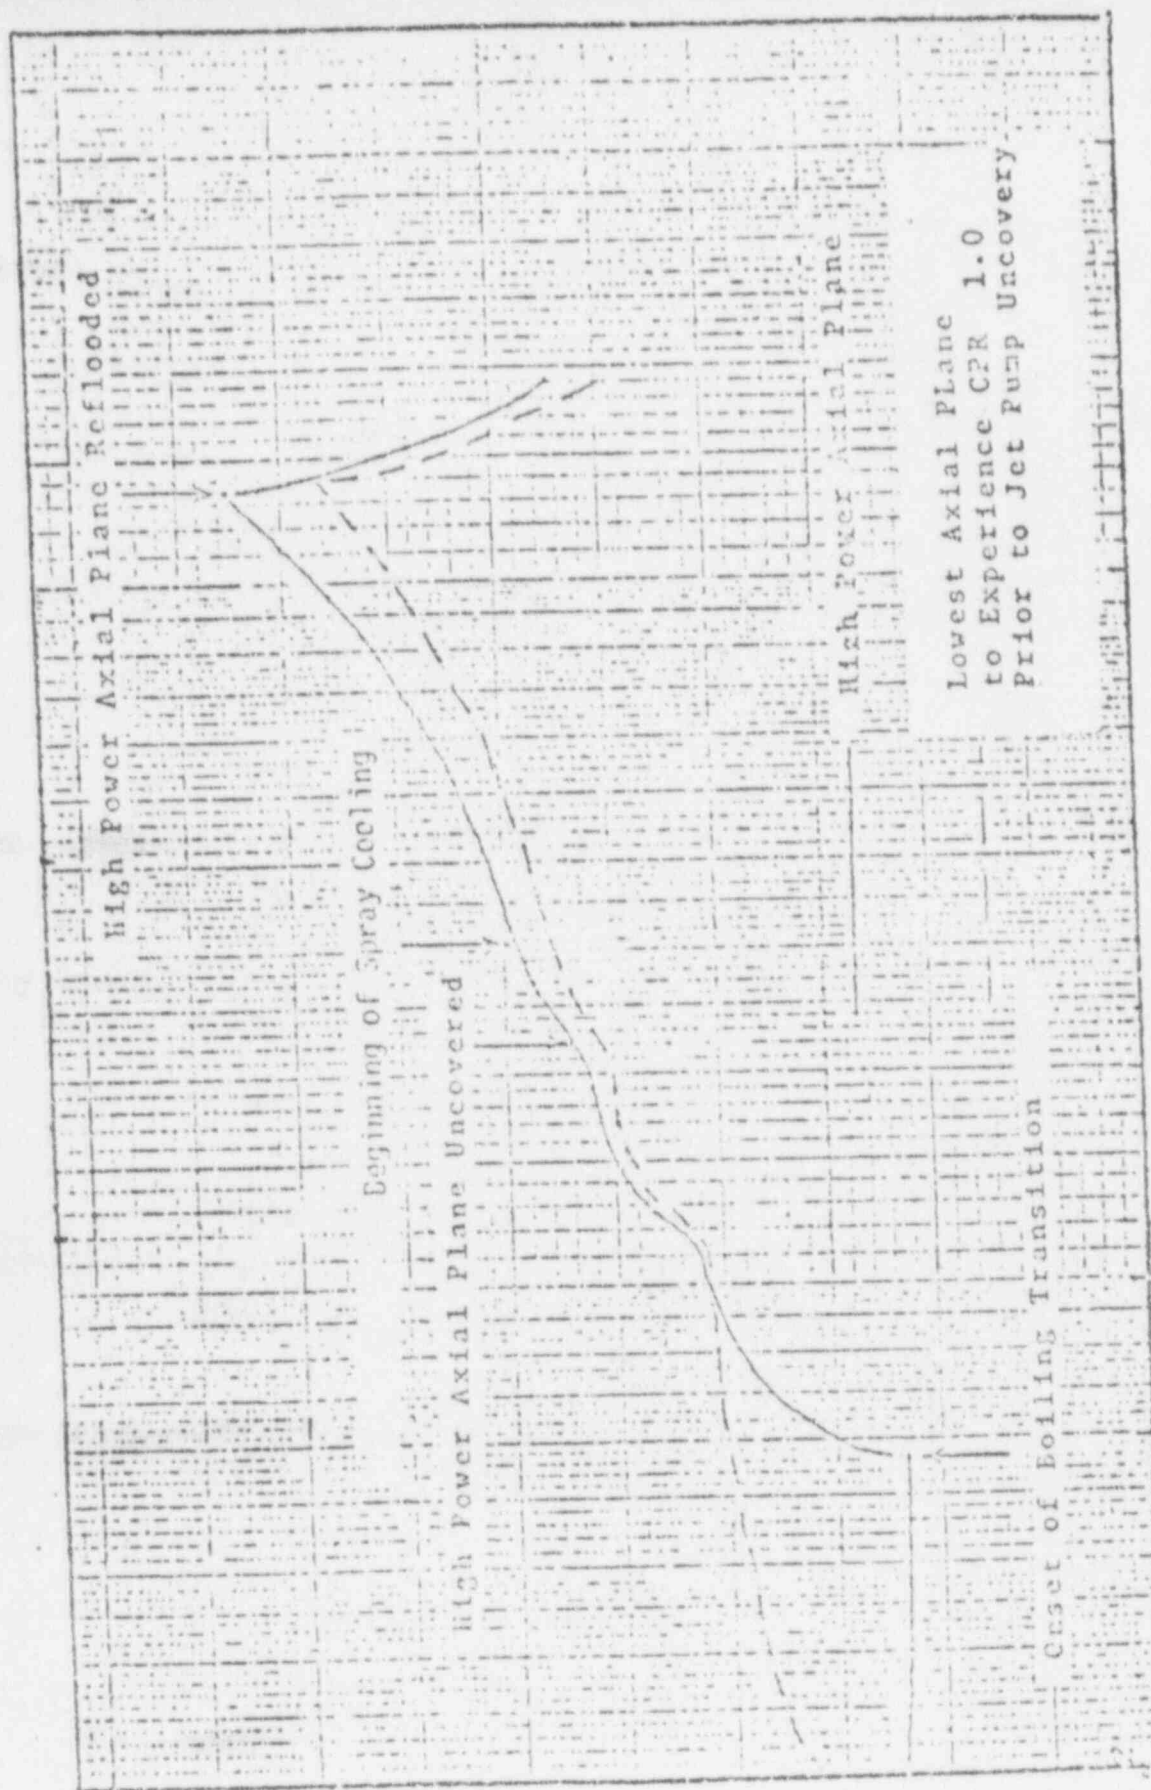 High Power Axial Plane Reflooded
Beginning of Spray Cooling
High Power Axial Plane Uncovered
High Power Axial Plane
Lowest Axial PLane
to Experience CPR 1.0
Prior to Jet Pump Uncovery
Onset of Boiling Transition